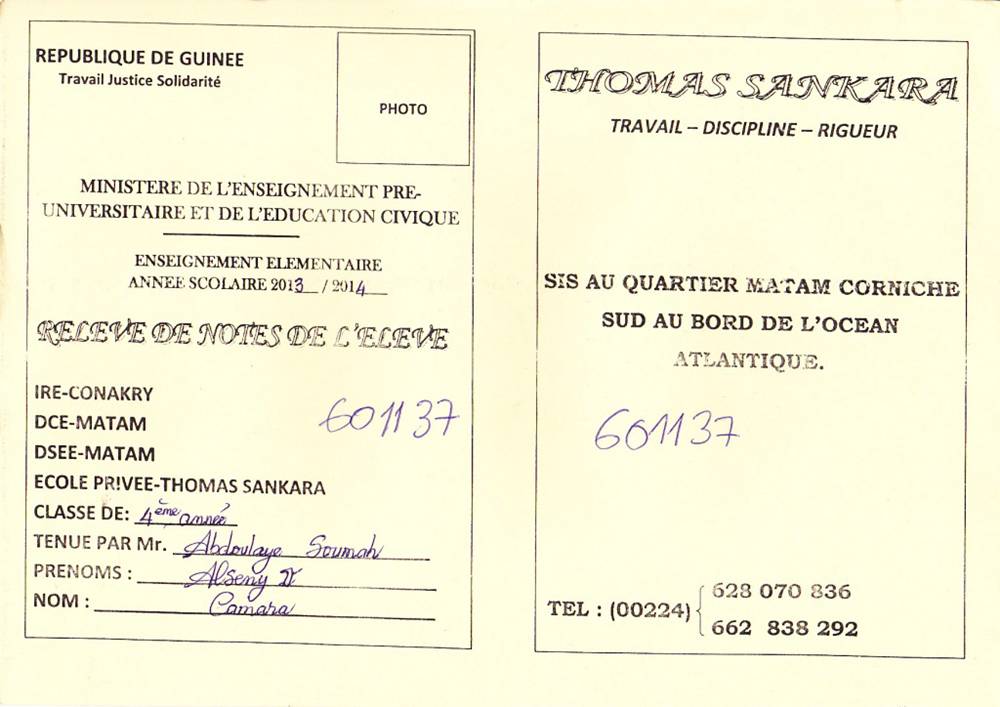 REPUBLIQUE DE GUINEE
Travail Justice Solidarité
PHOTO
MINISTERE DE L'ENSEIGNEMENT PRE-
UNIVERSITAIRE ET DE L'EDUCATION CIVIQUE
ENSEIGNEMENT ELEMENTAIRE
ANNEE SCOLAIRE 2013 / 2014
RELEVE DE NOTES DE L'ELEVE
IRE-CONAKRY
601137
DCE-MATAM
DSEE-MATAM
ECOLE PRIVEE-THOMAS SANKARA
CLASSE DE: 4ème année
TENUE PAR Mr. Abdoulaye Soumah
PRENOMS : Alseny D
NOM : Camara
THOMAS SANKARA
TRAVAIL – DISCIPLINE – RIGUEUR
SIS AU QUARTIER MATAM CORNICHE
SUD AU BORD DE L'OCEAN
ATLANTIQUE.
601137
TEL : (00224) 628 070 836
662 838 292